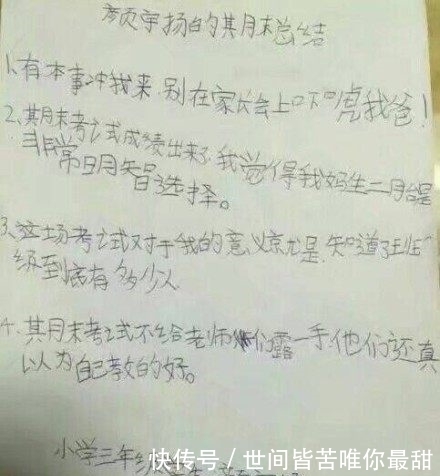 颜宇扬的其月末总结
1、有本事冲我来,别在家长会上口下口虎我爸!
2、其月末考试成绩出来了,我觉得我妈生二月台是
非常明智选择。
3、这场考试对于我的意义京尤是,知道了班
级到底有多少人
4、其月末考试不给老师们露一手,他们还真
以为自己教的好。
小学三年级
快传号/世间皆苦唯你最甜